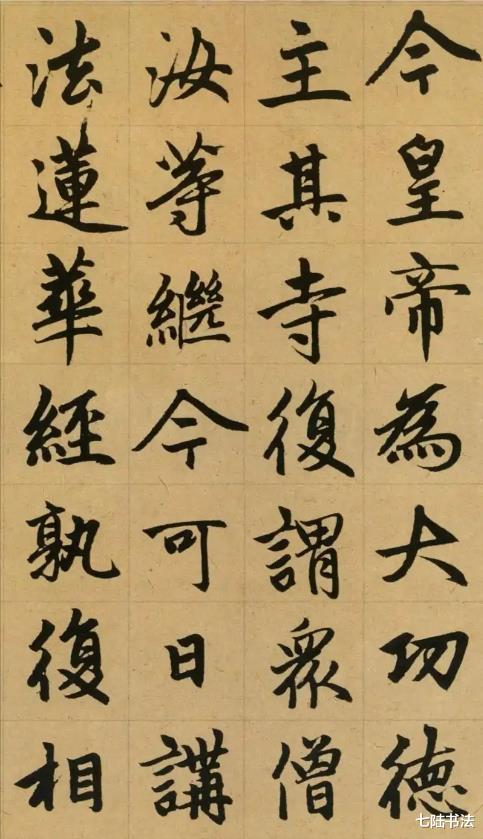 今皇帝為大功德
主其寺復謂眾僧
汝等繼今可日講
法蓮華經孰復相
七陆书法